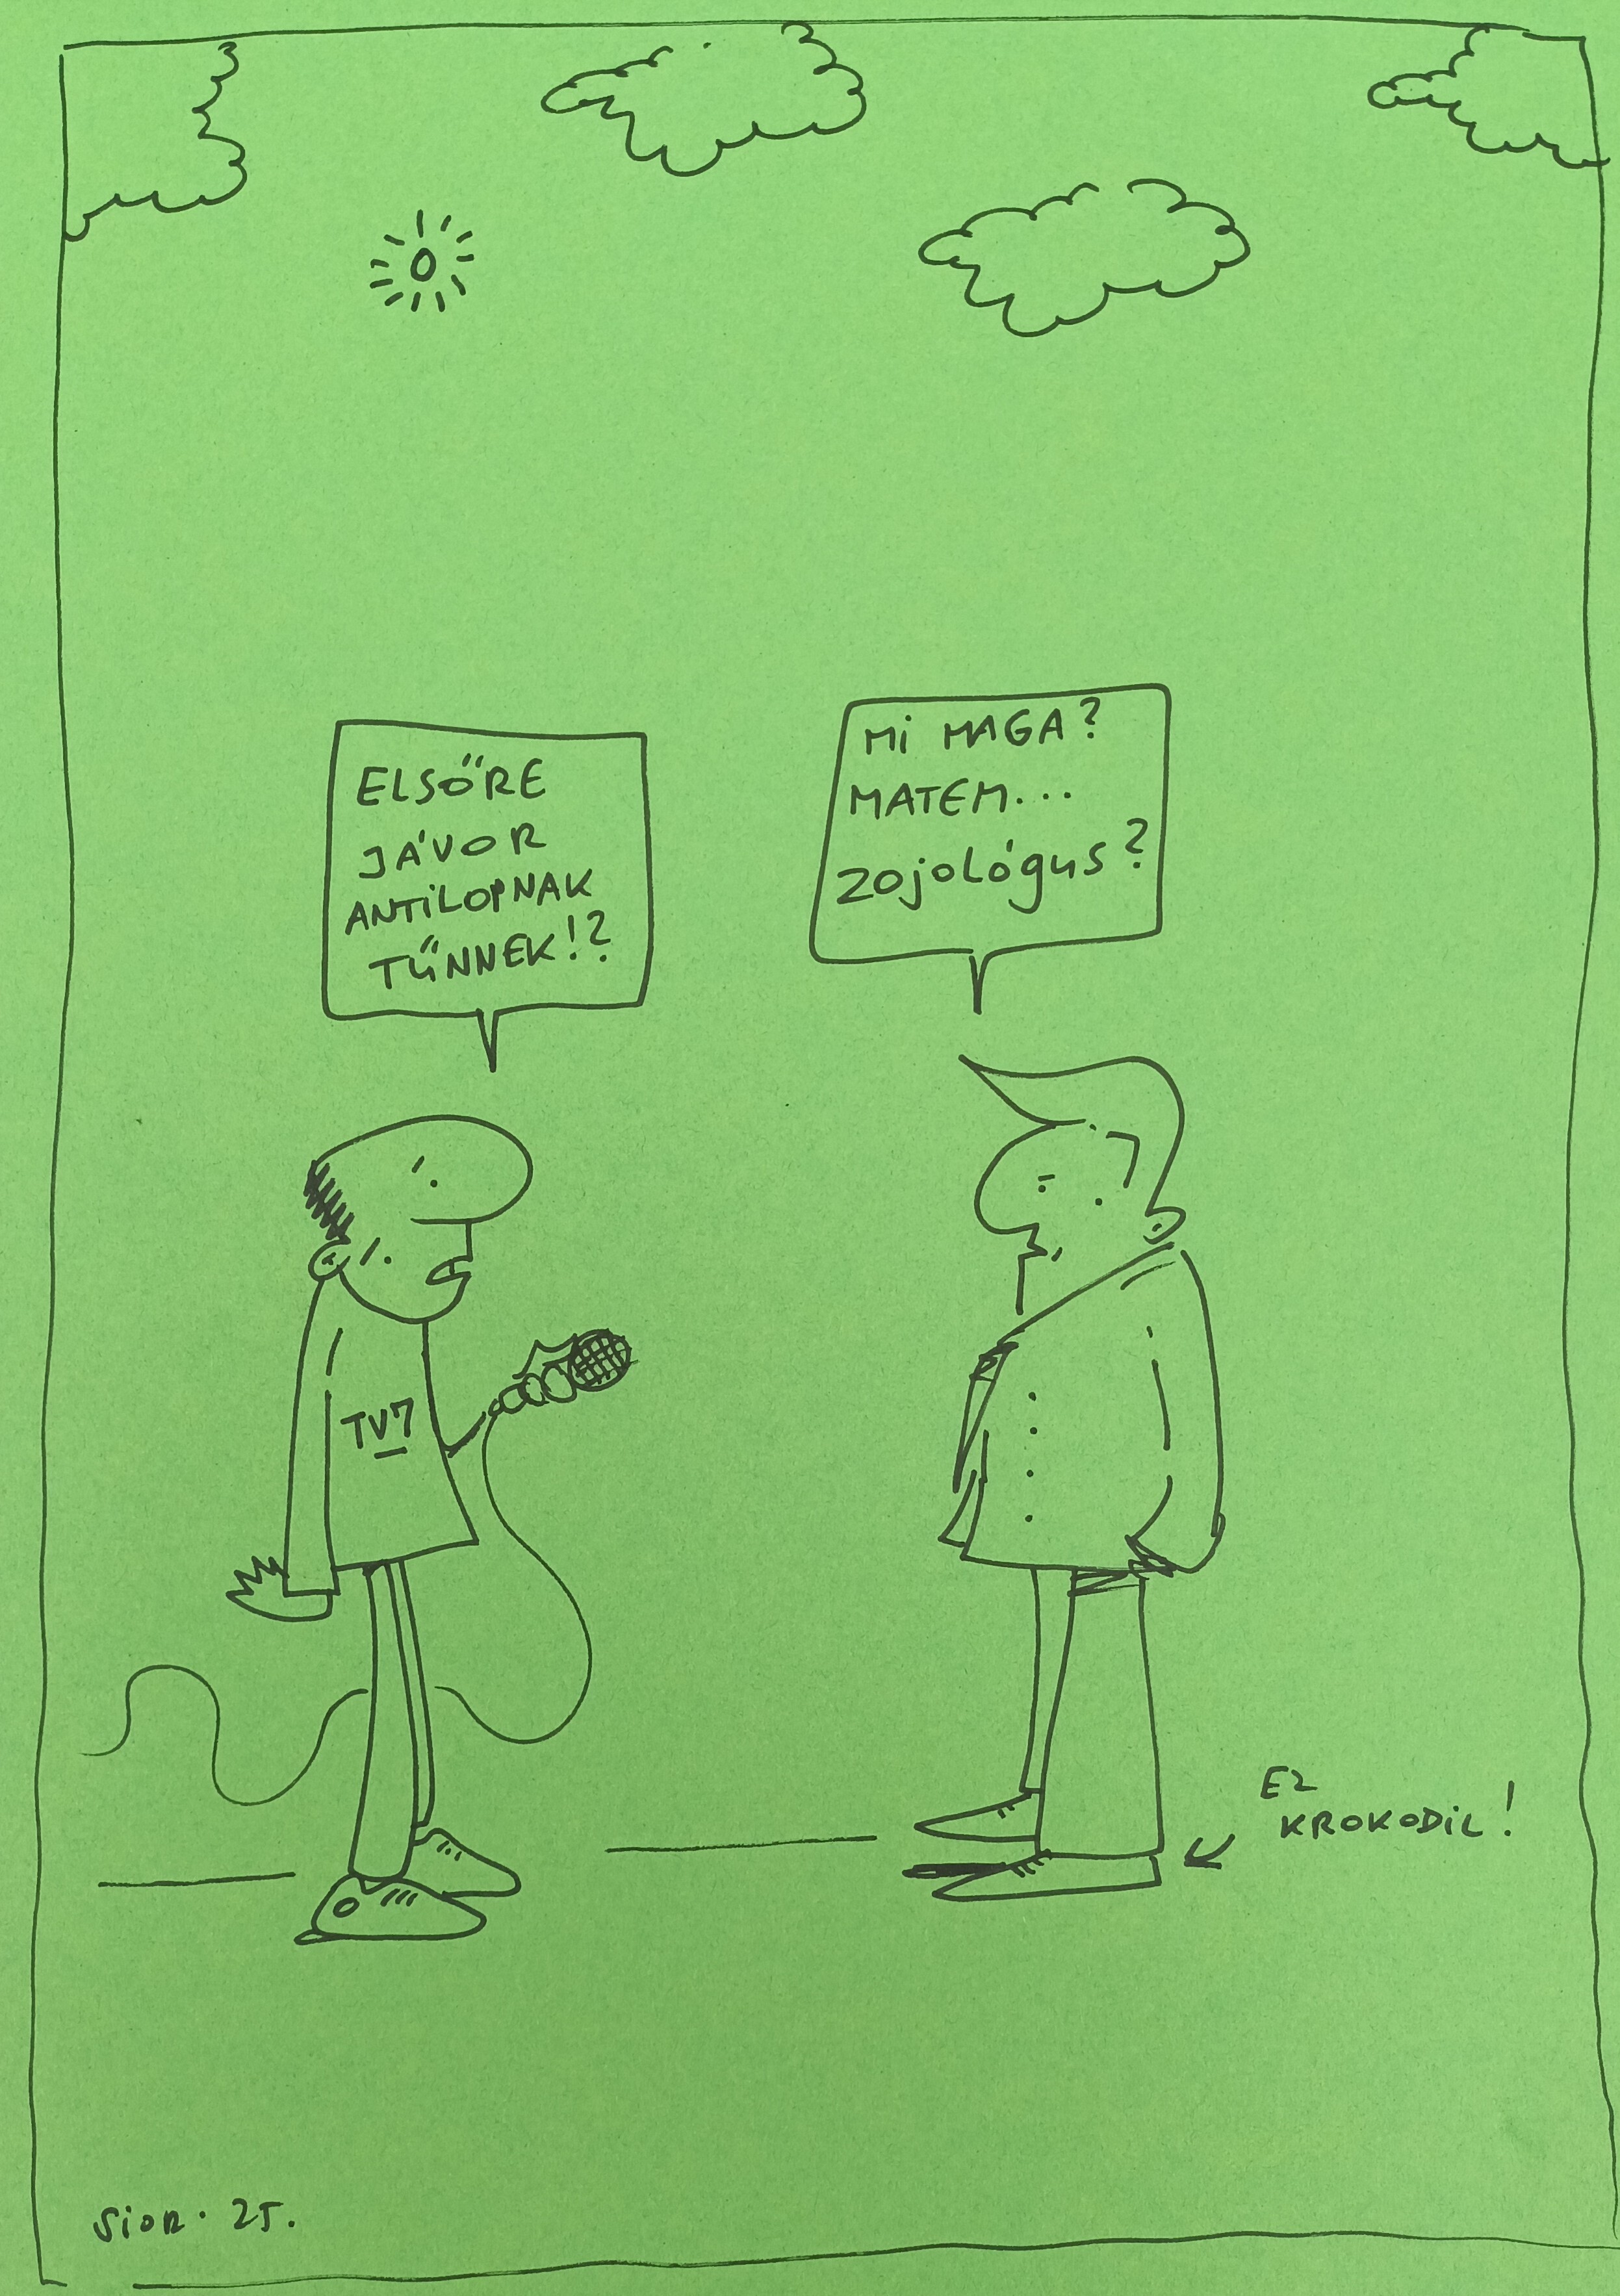 ELSŐRE
JÁVOR
ANTiLOPNAK
TŰNNEK!?
Mi MAGA?
MATEM...
zojológus?
TV7
EZ
KROKODiL!
Sior. 25.